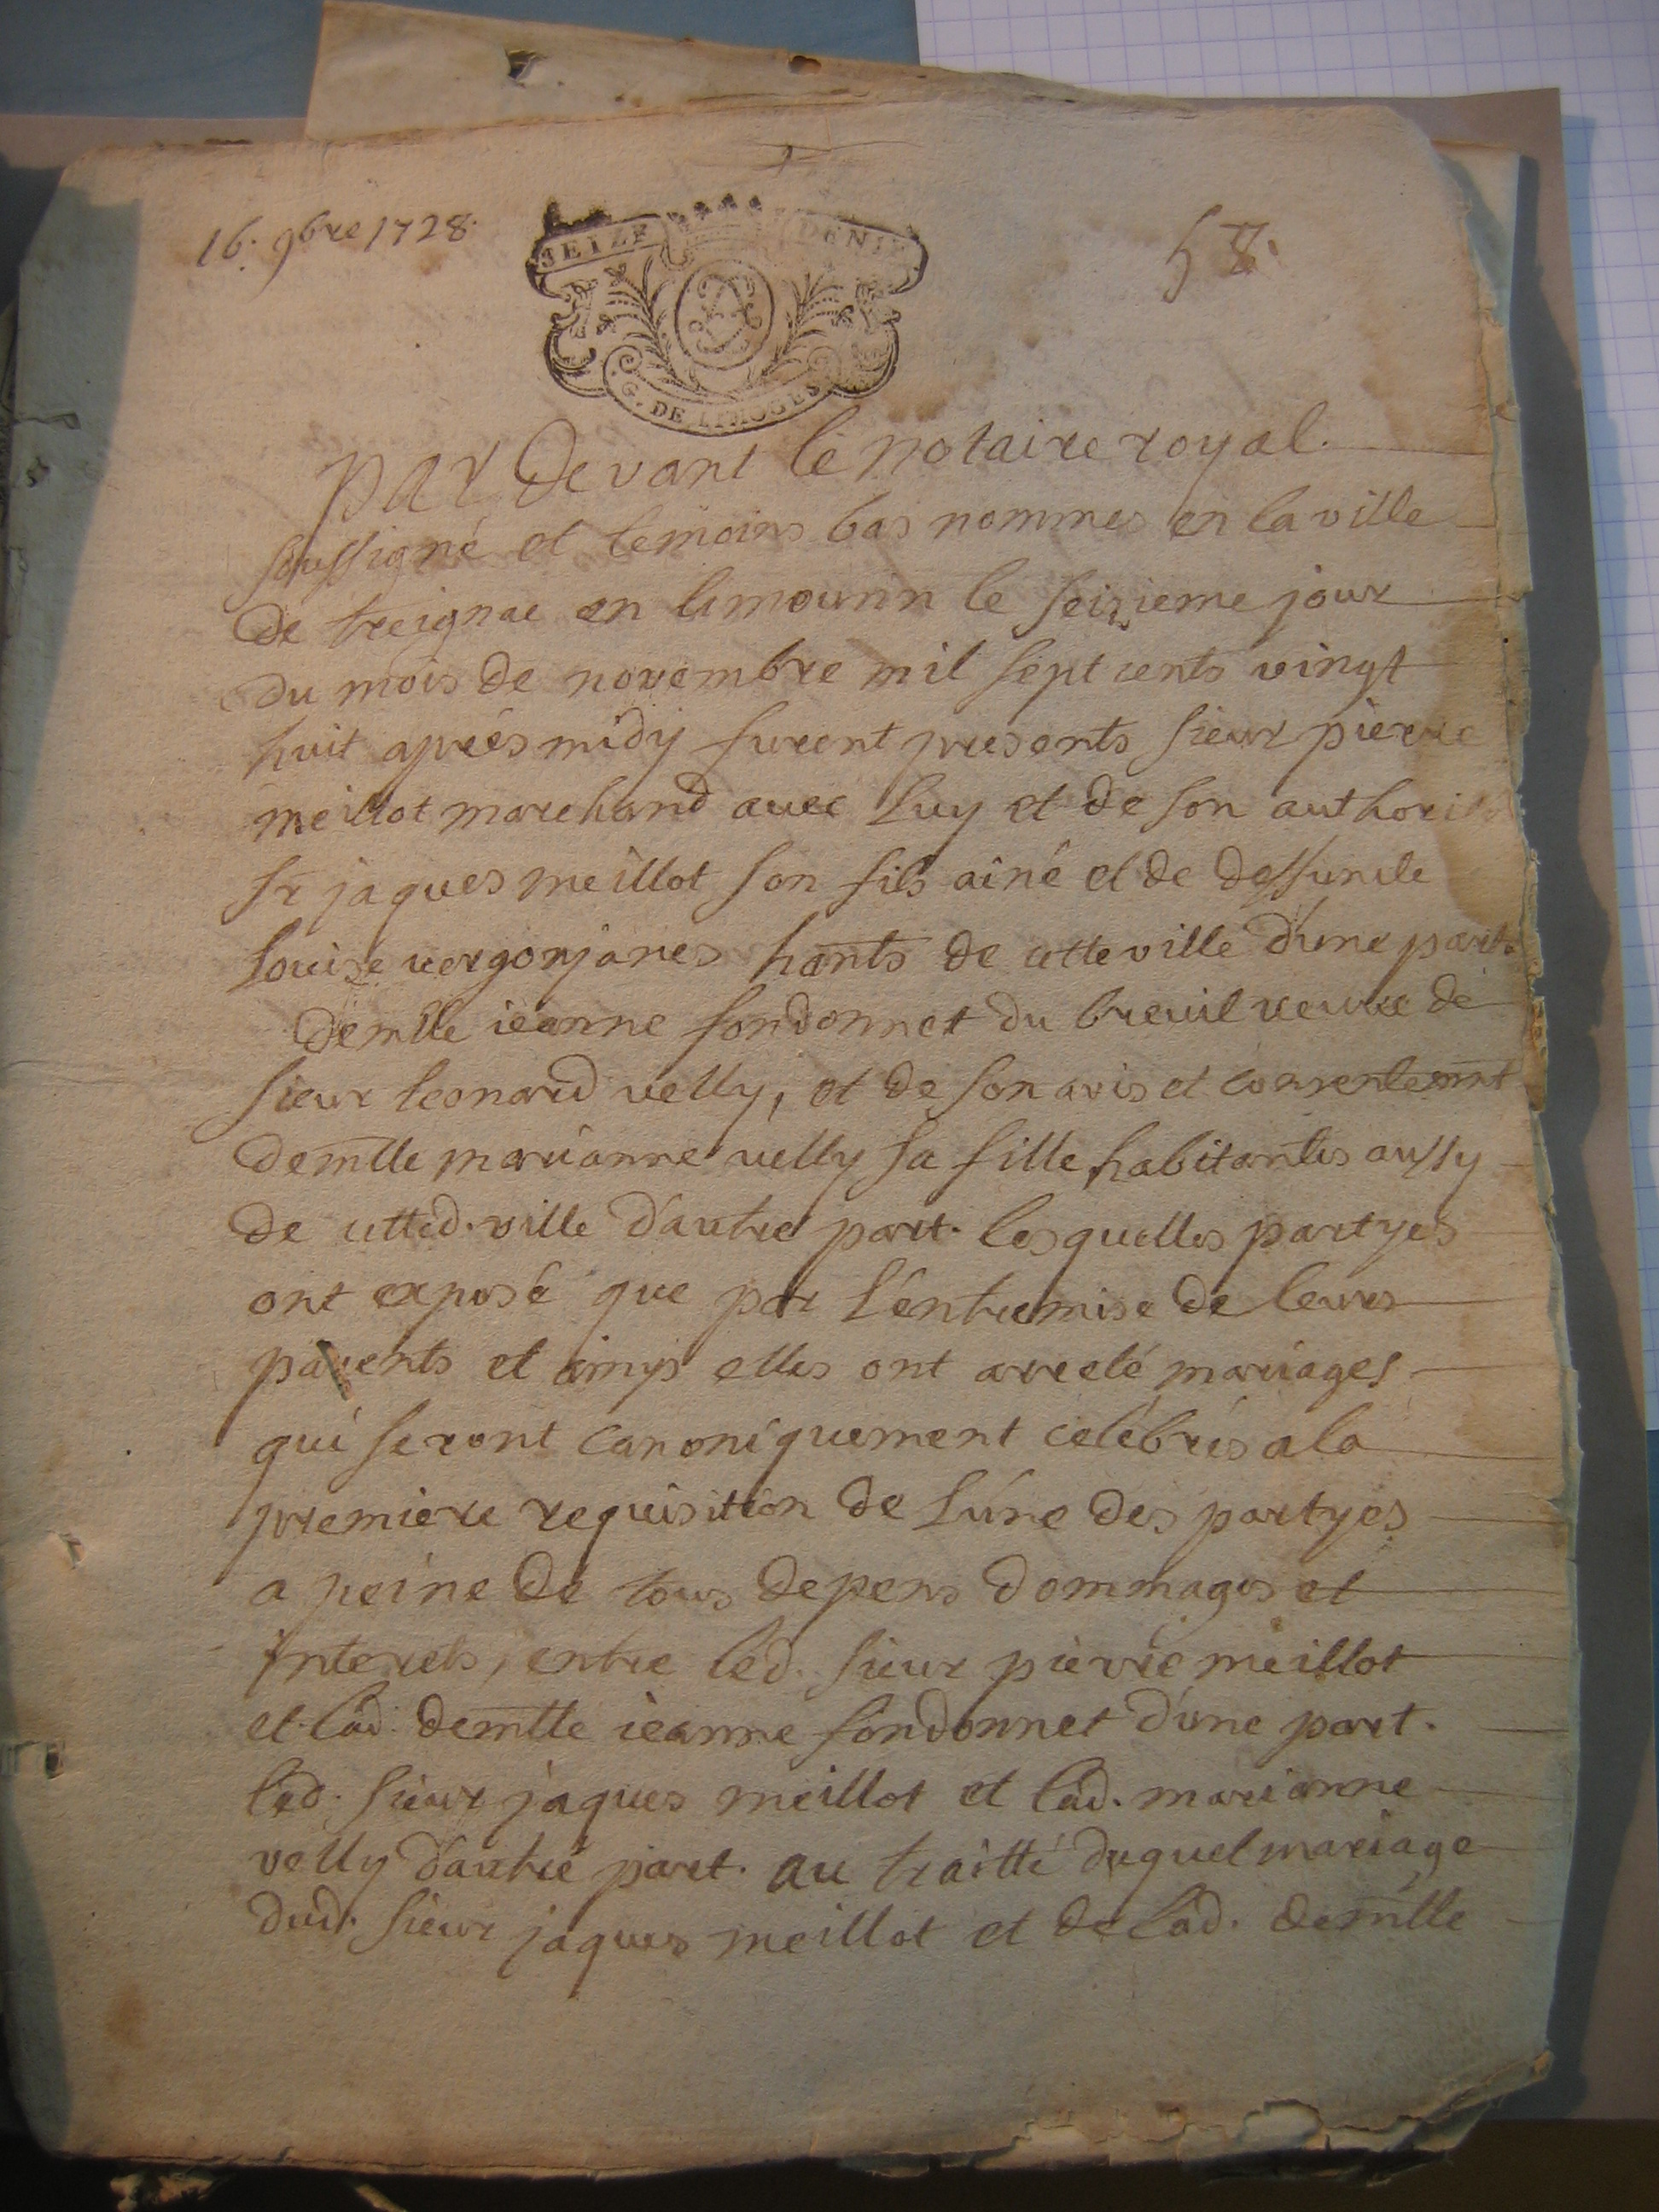 16. 9bre 1728.
58.
SEIZE DENIE
G. DE LIMOGES
PAR Devant le notaire royal.
soussigné et temoins bas nommes en la ville
de treignac en limounin le seizieme jour
du mois de novembre mil sept cents vingt
huit aprés midy furent presents sieur pierre
meillot marchand avec Luy et de son authorité
sr jaques meillot son fils aîné et de deffuncte
Louise vergonjanes hants de cette ville d'une part.
demlle ieanne fondonnet du breuil veuve de
sieur leonard velly, et de son avis et consentemnt
demlle marianne velly sa fille habitantes aussy
de cetted. ville d'autre part. lesquelles partyes
ont exposé que par L'entremise de leurs
parents et amys elles ont arreté mariages
qui seront canoniquement celebrés a la
premiere requisition de L'une des partyes
a peine de tous depens dommages et
Interets, entre led. sieur pierre meillot
et lad. demlle ieanne fondonnet d'une part.
led. sieur jaques meillot et lad. marianne
velly d'autre part. au traitté duquel mariage
dud. sieur jaques meillot et de lad. demlle